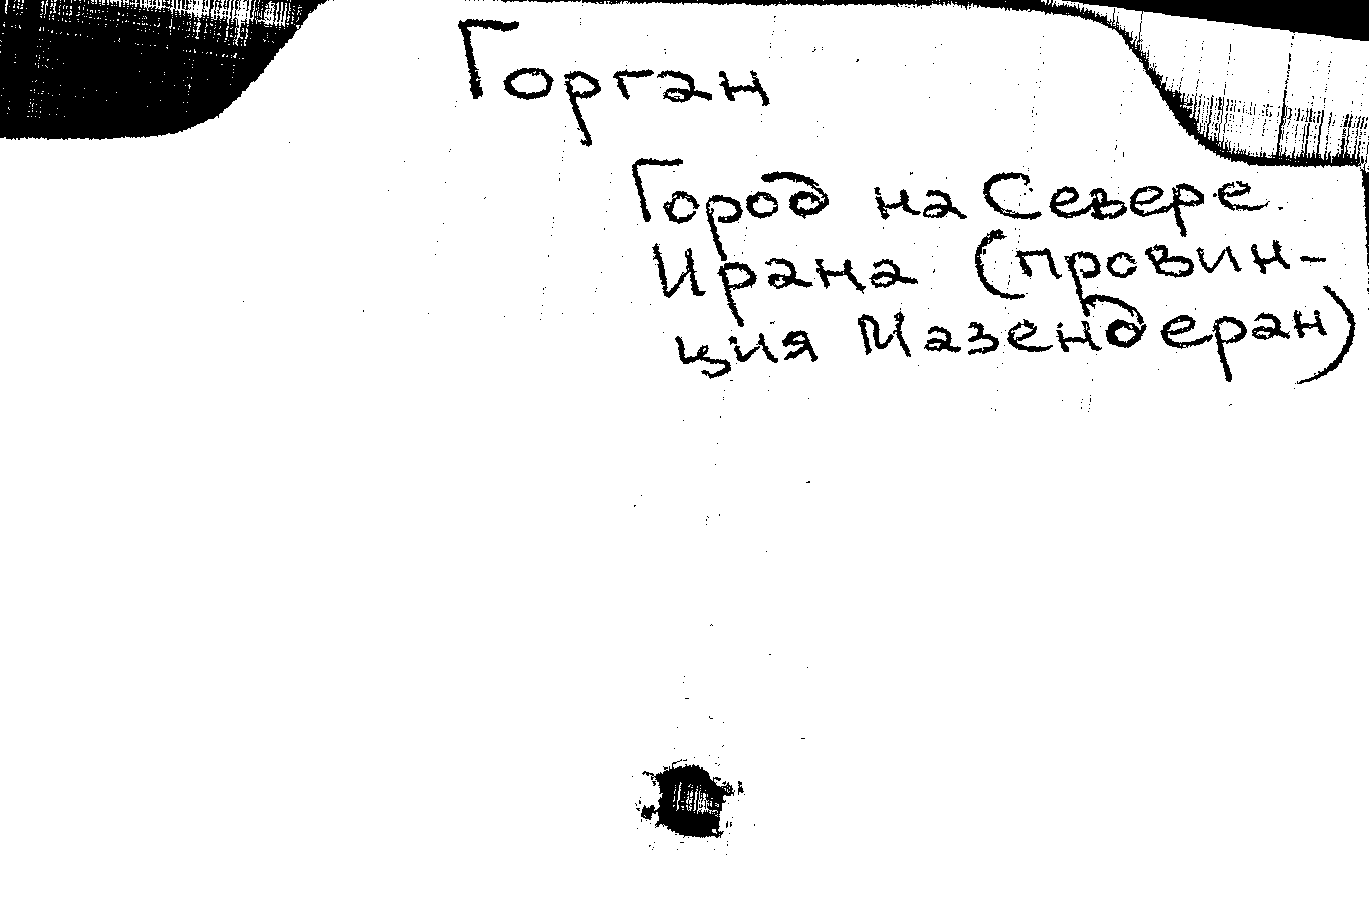 Горган
Город на Севере
Ирана (провин-
ция Мазендеран)